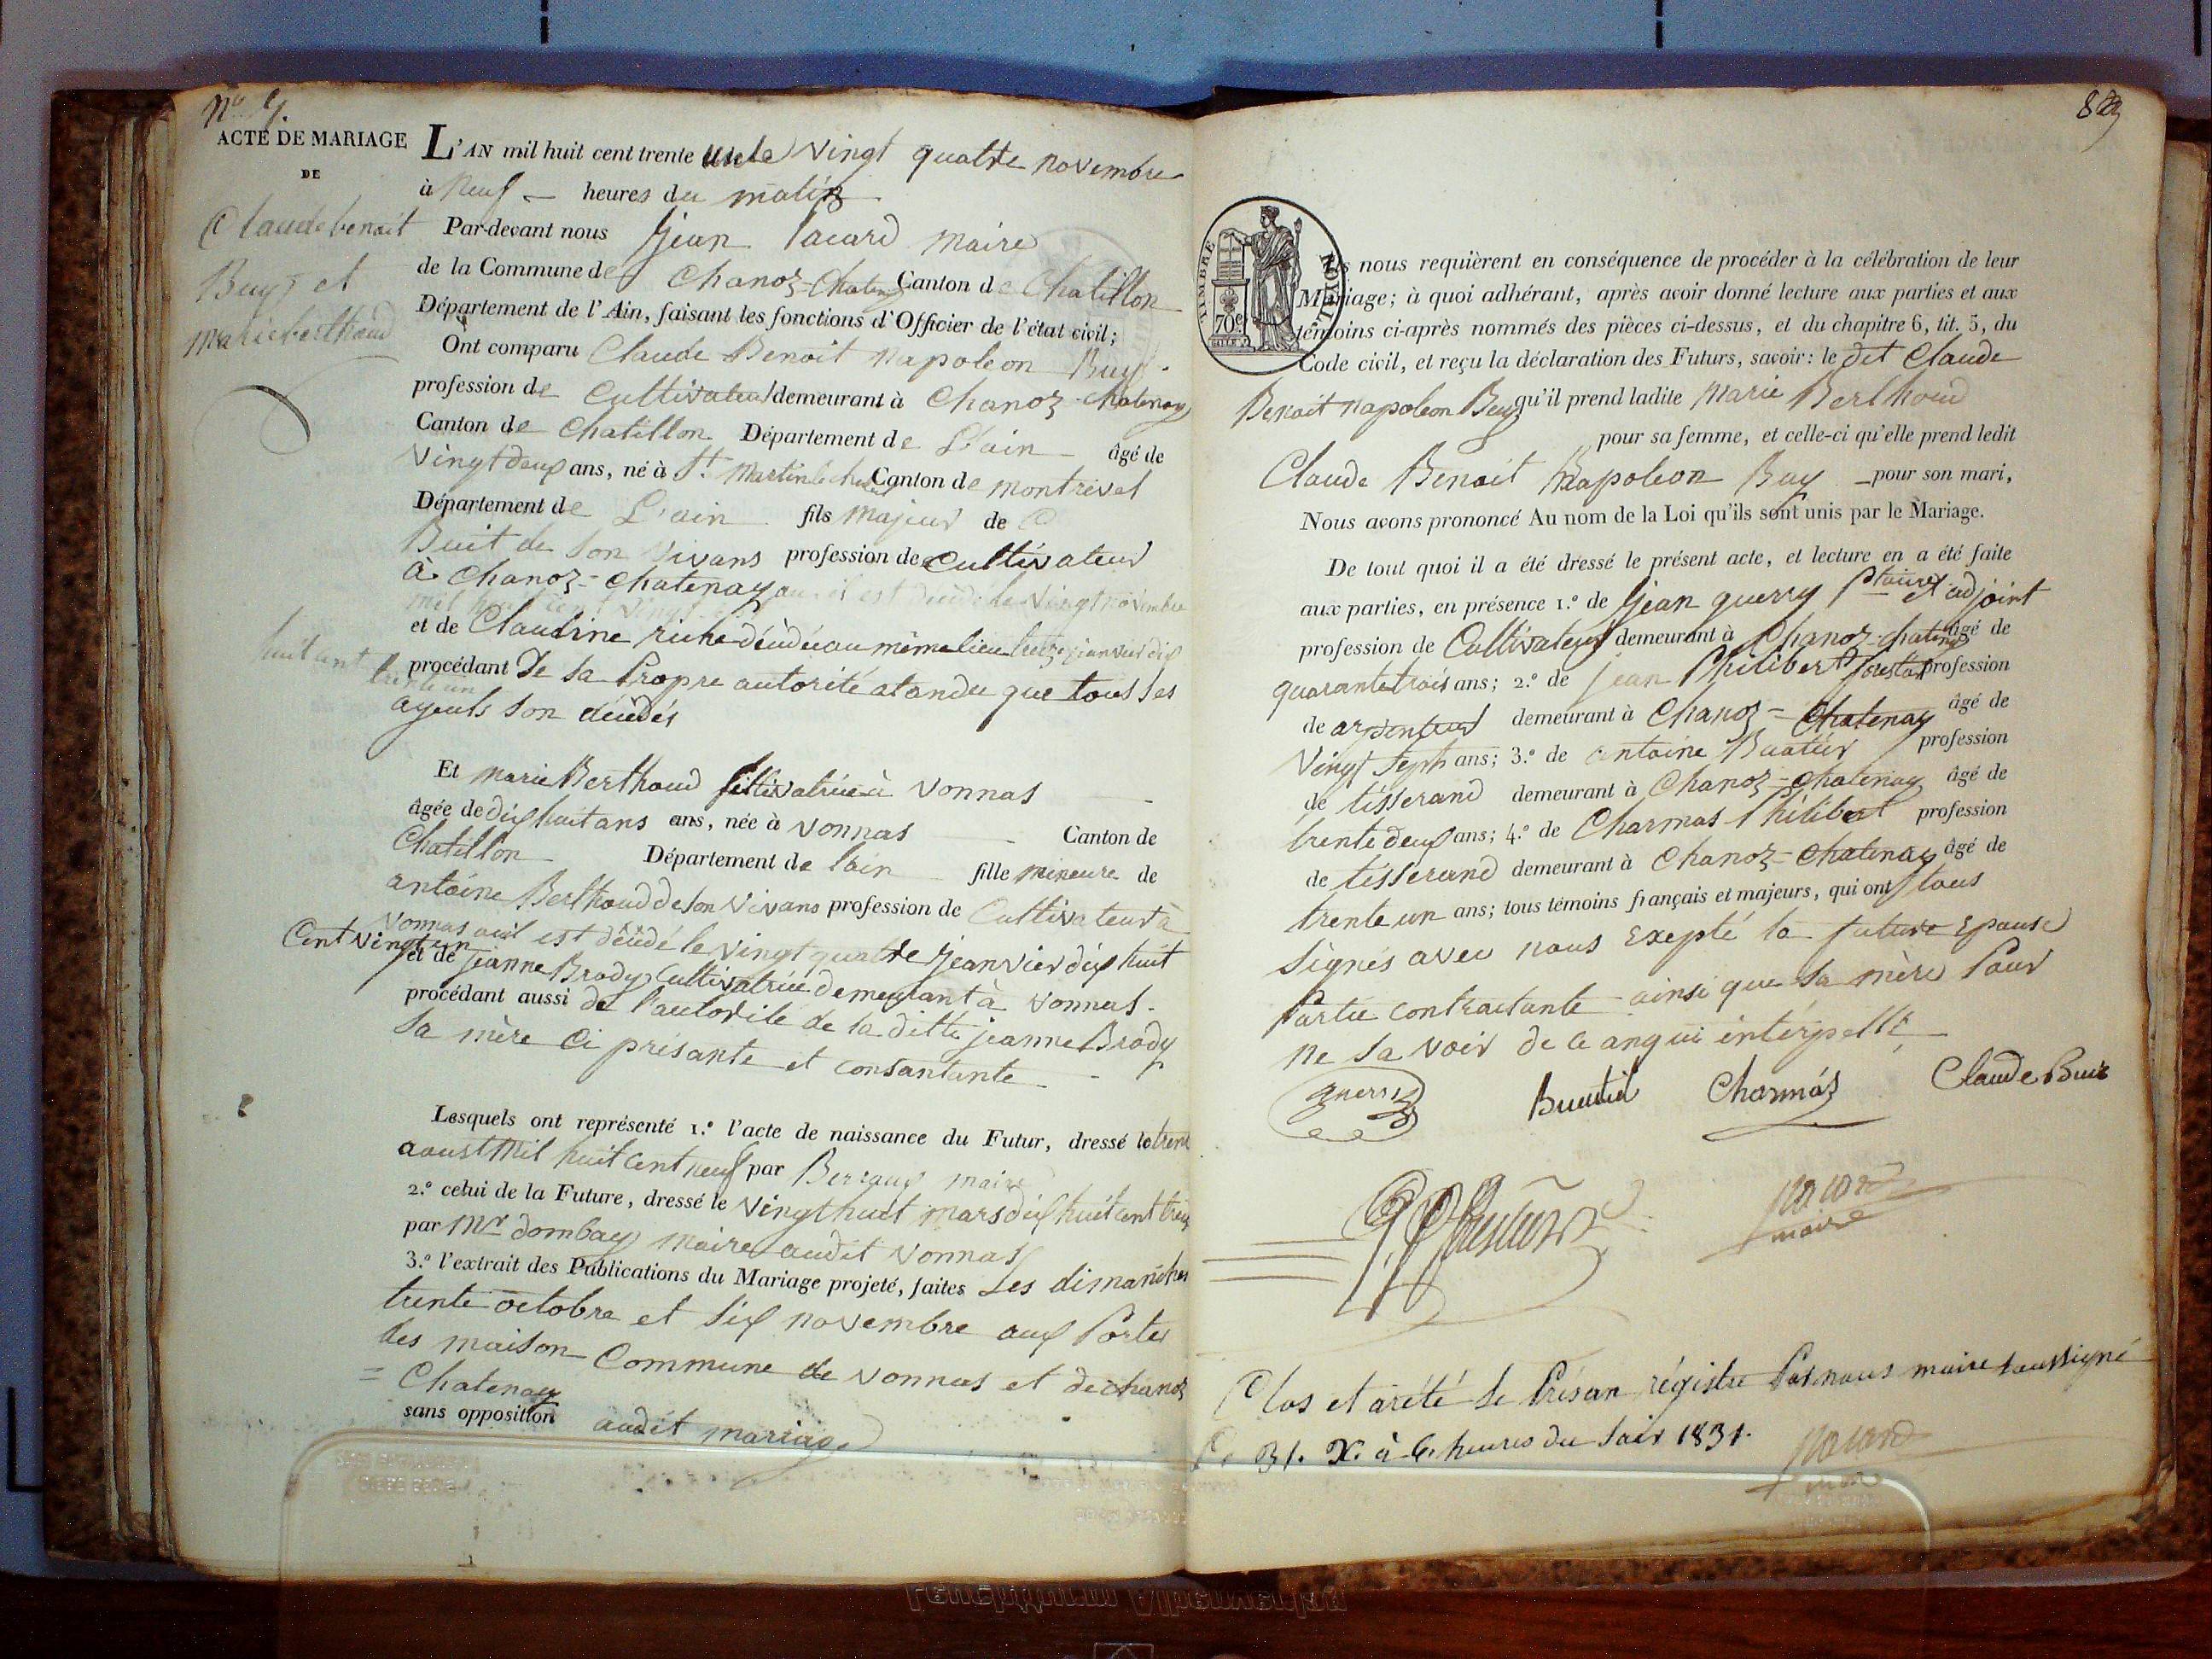 N.o 9.
ACTE DE MARIAGE
DE
Claude benoit
Buyt et
marie berthoud
L'AN mil huit cent trente une le vingt quatre novembre
à neuf heures du matin
Par-devant nous Jean Pacard maire
de la Commune de Chanoz-Chatenay Canton de Chatillon
Département de l'Ain, faisant les fonctions d'Officier de l'état civil;
Ont comparu Claude Benoit Napoleon Buyt
profession de Cultivateur demeurant à Chanoz-Chatenay
Canton de Chatillon Département de L'ain âgé de
vingt deux ans, né à St. Martin le chatel Canton de montrevel
Département de L'ain fils majeur de C
Buit de son vivans profession de Cultivateur
à Chanoz-Chatenay ou il est décédé le vingt novembre
mil huit cent vingt
et de Claudine riche décédée au même lieu treize janvier dix
huit cent
trente un
procédant De sa Propre autorité atandu que tous ses
ayeuls son décédés
Et marie Berthoud Cultivatrice à Vonnas
âgée de dix huit ans ans, née à Vonnas Canton de
Chatillon Département de lain fille mineure de
antoine Berthoud de son vivans profession de Cultivateur à
Vonnas ouil est décédé le vingt quatre jeanvier dix huit
Cent vingt un
et de jeanne Brady Cultivatrice demeurant à Vonnas.
procédant aussi de l'autorité de la ditte jeanne Brady
sa mère Ci présante et consantante
Lesquels ont représenté 1.º l'acte de naissance du Futur, dressé le trente
aoust Mil huit cent neuf par Berraud maire
2.º celui de la Future, dressé le vingt huit mars dix huit cent treize
par Mr dombay maire audit Vonnas
3.º l'extrait des Publications du Mariage projeté, faites Les dimanches
trente octobre et six novembre aux Portes
des maison Commune de Vonnas et de chanoz
= Chatenay
sans opposition audit mariage
829
TIMBRE ROYAL
70c
Ils nous requièrent en conséquence de procéder à la célébration de leur
Mariage; à quoi adhérant, après avoir donné lecture aux parties et aux
témoins ci-après nommés des pièces ci-dessus, et du chapitre 6, tit. 5, du
Code civil, et reçu la déclaration des Futurs, savoir: le dit Claude
Benoit napoleon Buy qu'il prend ladite Marie Berthoud
pour sa femme, et celle-ci qu'elle prend ledit
Claude Benoit Napoleon Buy pour son mari,
Nous avons prononcé Au nom de la Loi qu'ils sont unis par le Mariage.
De tout quoi il a été dressé le présent acte, et lecture en a été faite
aux parties, en présence 1.º de Jean guerry adjoint
profession de Cultivateur demeurant à Chanoz-chatenay âgé de
quarante trois ans; 2.º de jean Philibert forestier profession
de arpenteur demeurant à Chanoz = Chatenay âgé de
Vingt septs ans; 3.º de antoine Buatier profession
de tisserand demeurant à Chanoz = Chatenay âgé de
trente deux ans; 4.º de Charmas Philibert profession
de tisserand demeurant à Chanoz = Chatenay âgé de
trente un ans; tous témoins français et majeurs, qui ont tous
signés avec nous Exepté la future Epouse
Partie contractante ainsi que sa mère Pour
ne savoir de ce anqui intérpellé
guerry Buatié Charmas Claude Buit
Pacard
maire
Clos et arété le Présan régistre Par nous maire soussigné
Ce 31. X. à 6. heures du soir 1831.
Pacard
maire
Leuchtturm Albenverlag